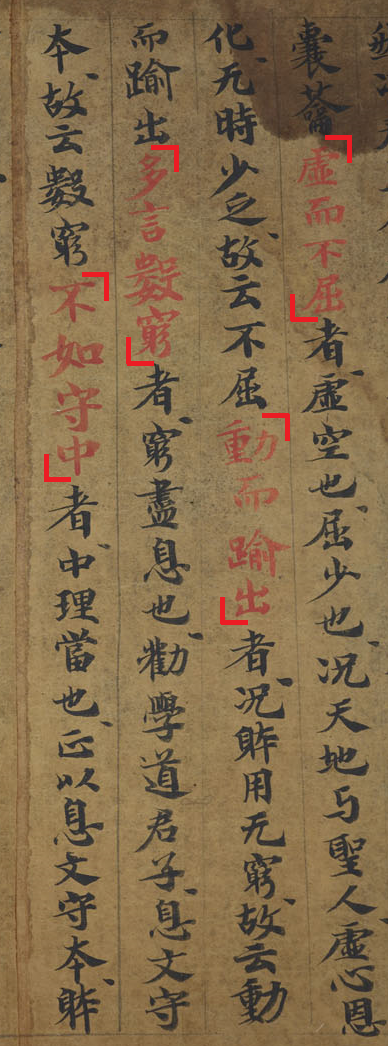 囊蘥虛而不屈者虛空也屈少也況天地与聖人虛心恩
化无時少之故云不屈動而踰出者況躰用无窮故云動
而踰出多言數窮者窮盡息也勸學道君子息文守
本故云數窮不如守中者中理當也正以息文守本躰